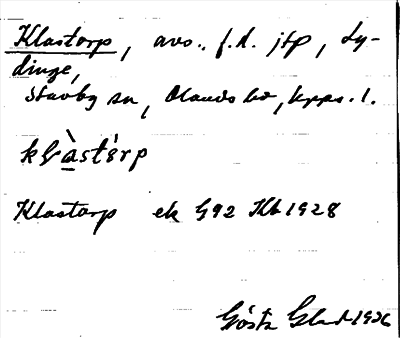 Klastorp, avs., f.d. jtp, Ly-
dinge,
Stavby sn, Olands hd, Upps. l.
klàstórp
Klastorp ek G92 Kb 1928
Gösta 1936